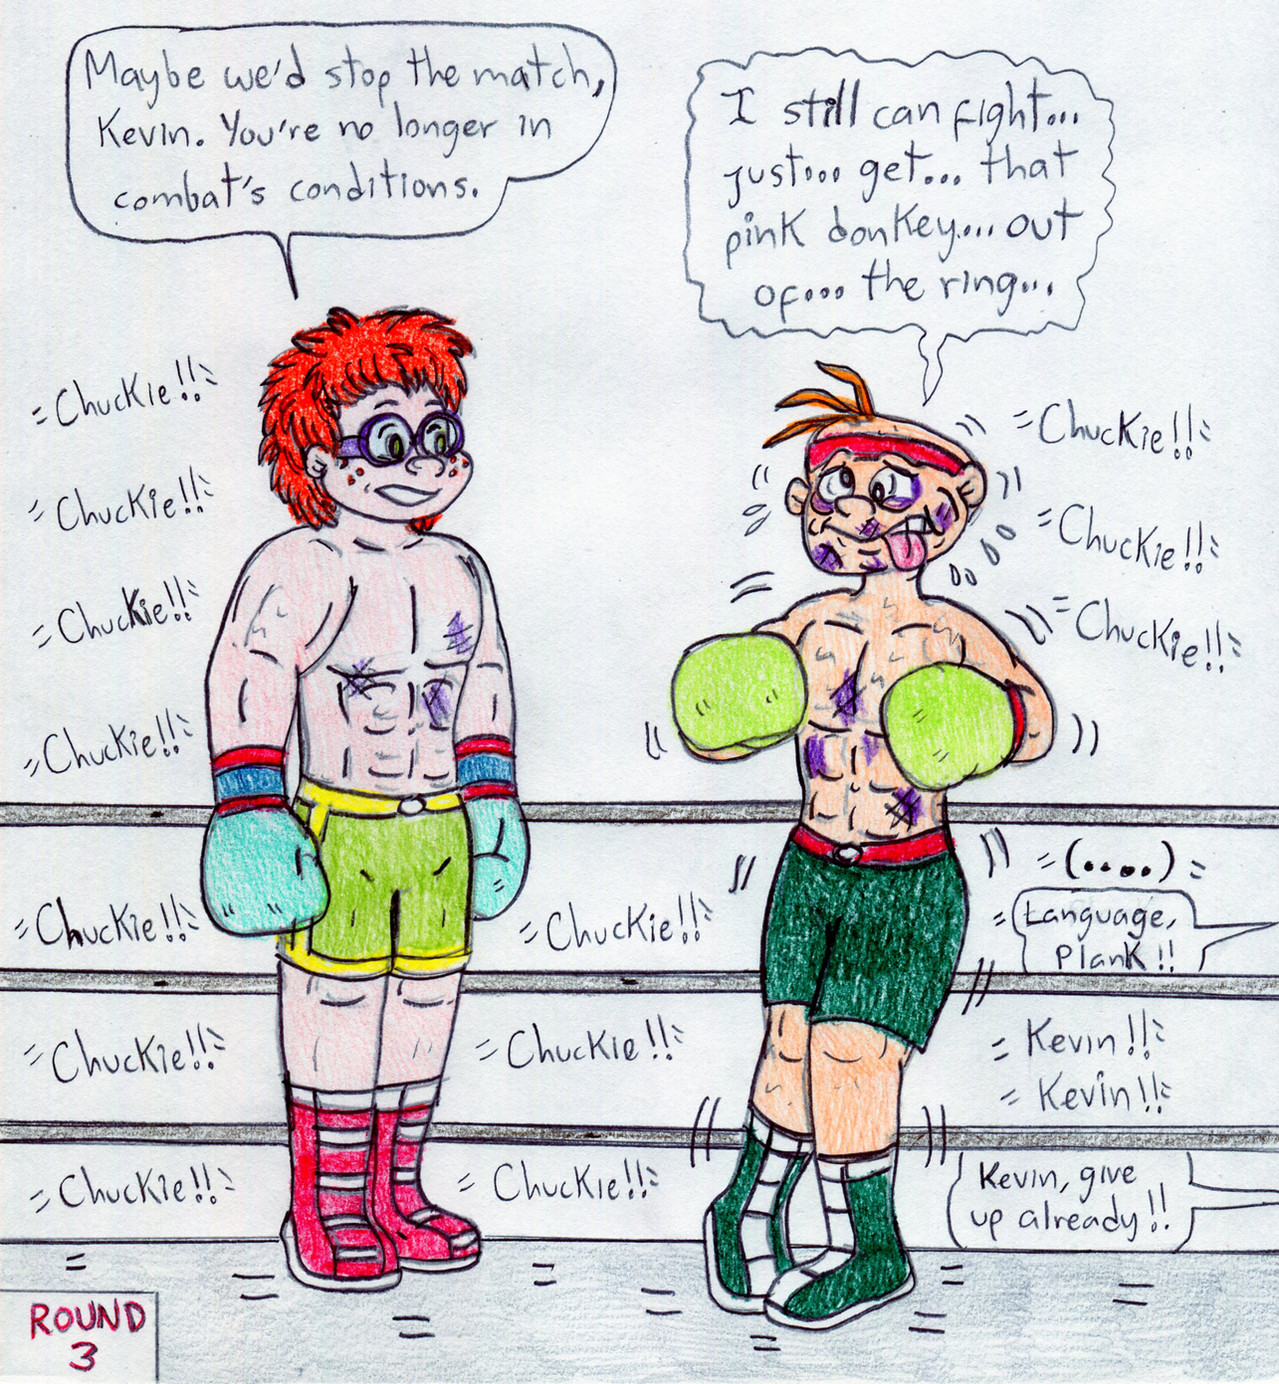 Maybe we'd stop the match,
Kevin. You're no longer in
combat's conditions.
I still can fight...
just... get... that
pink donkey... out
of... the ring...
Chuckie!!
Chuckie!!
Chuckie!!
Chuckie!!
Chuckie!!
Chuckie!!
Chuckie!!
Chuckie!!
Chuckie!!
Chuckie!!
Chuckie!!
Chuckie!!
Chuckie!!
(.....)
Language,
Plank!!
Kevin!!
Kevin!!
Kevin, give
up already!!
ROUND
3